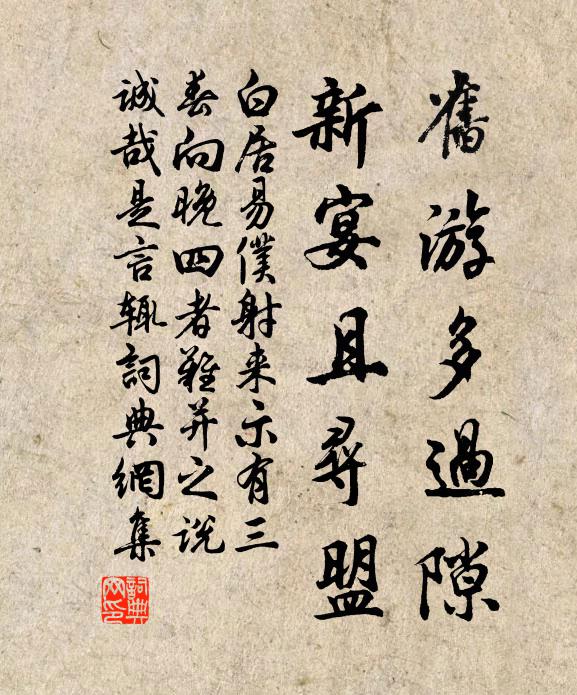 舊游多過隙
新宴且尋盟
白居易僕射来示有三
春向晚四者難并之说
诚哉是言辄詞典網集
詞典网印